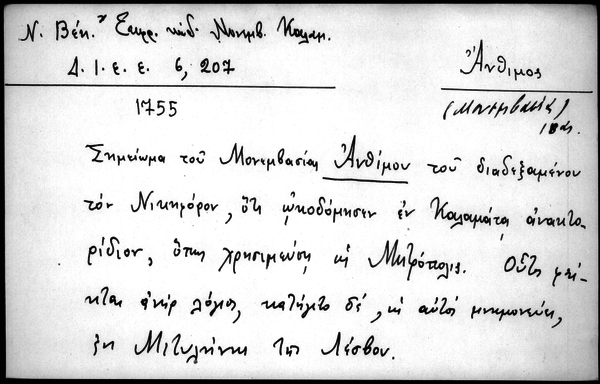 Ν. Βέη. Σπαρ. κώδ. Μονεμβ. Καλαμ.
Δ. Ι. Ε. Ε. 6, 207
Ἄνθιμος
(Μονεμβασίας)
1755
Σημείωμα τοῦ Μονεμβασίας Ἀνθίμου τοῦ διαδεξαμένου
τὸν Νικηφόρον, ὅτι ᾠκοδόμησεν ἐν Καλαμάτᾳ ἀνακτο-
ρίδιον, ὅπως χρησιμεύσῃ ὡς Μητρόπολις. Οὗτος
ἀνὴρ λόγιος, κατήγετο δέ, ὡς αὐτὸς μνημονεύει,
ἐκ Μιτυλήνης τῆς Λέσβου.